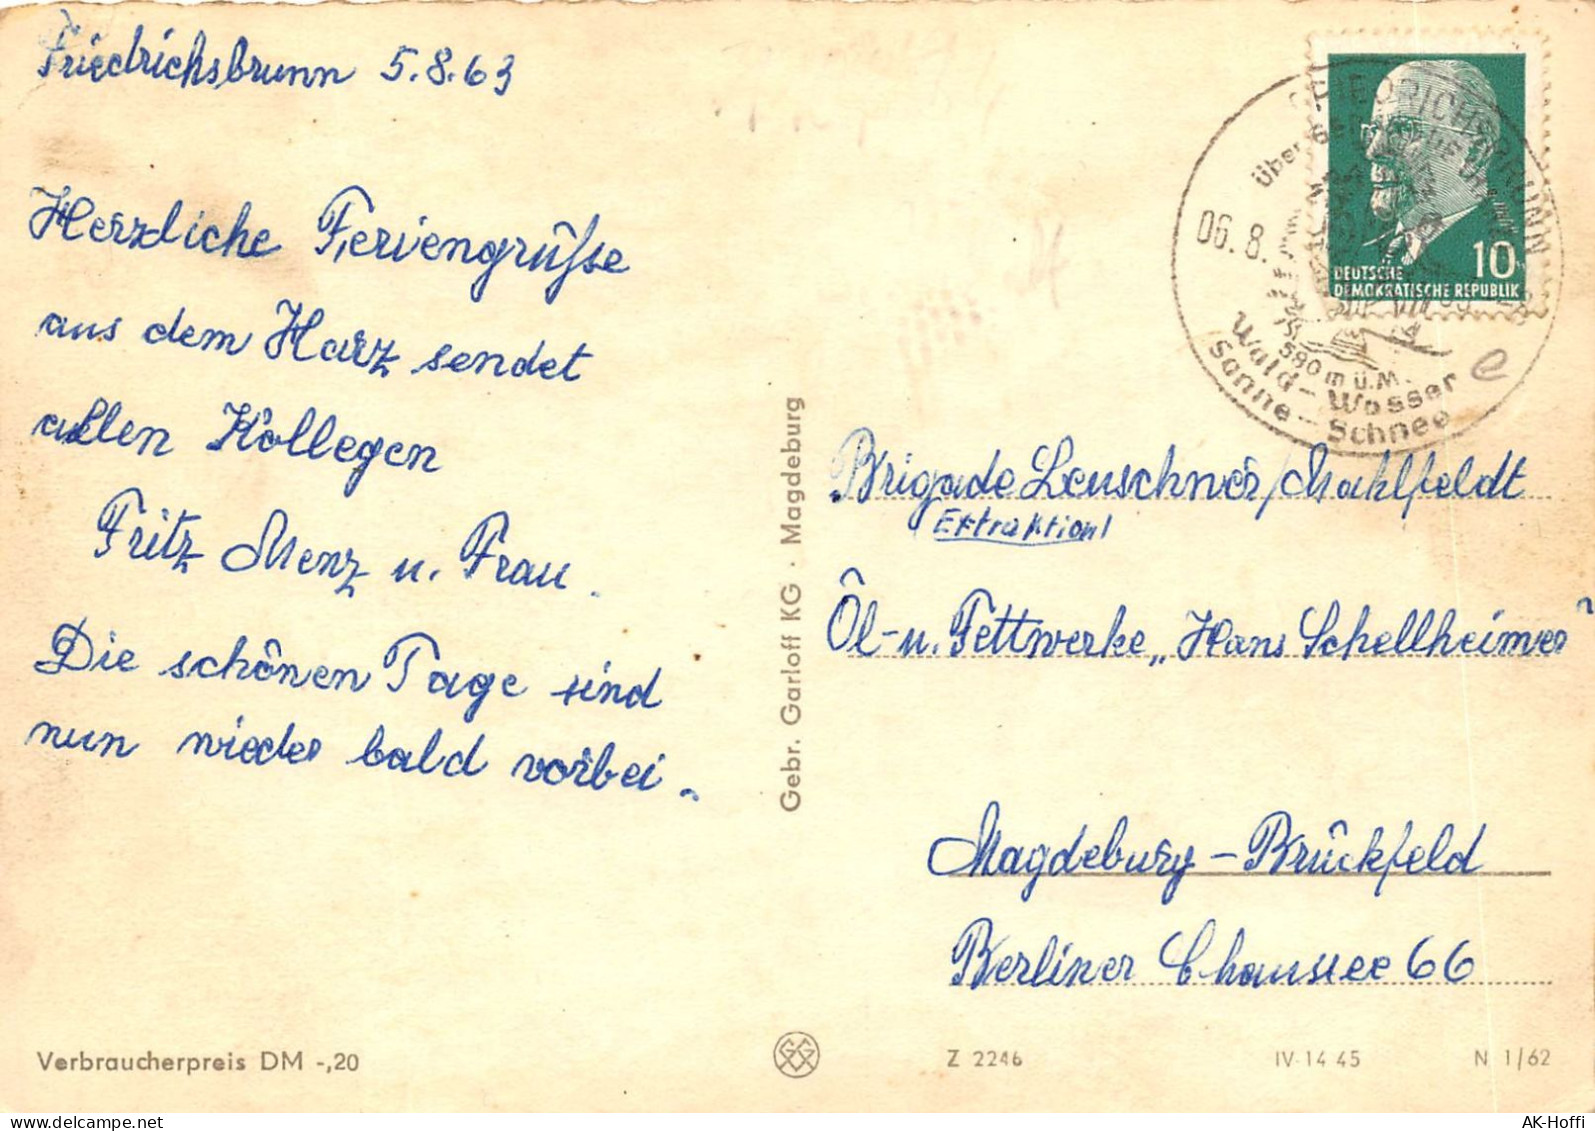 Friedrichsbrunn 5.8.63
Herzliche Feriengrüsse
aus dem Harz sendet
allen Kollegen
Fritz Menz u. Frau.
Die schönen Tage sind
nun wieder bald vorbei.
Verbraucherpreis DM -,20
Gebr. Garloff KG · Magdeburg
FRIEDRICHSBRUNN
über
06.8.
590 m ü.M.
Wald - Wasser
Sonne - Schnee
e
10
DEUTSCHE
DEMOKRATISCHE REPUBLIK
Brigade Leuschner/Mahlfeldt
Extraktion!
Öl- u. Fettwerke „Hans Schellheimer"
Magdeburg - Brückfeld
Berliner Chaussee 66
Z 2246 IV-14 45 N 1/62
AK-Hoffi